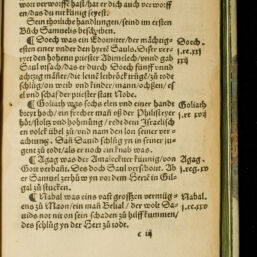 wort verworffē hast/hat er dich auch verworff
en/das du nit künig seyest.
Sein thötliche handlungen/seind im ersten
Bůch Samuelis beschriben.
¶ Doech was ein Edomiter/der mächtig-
esten einer vnder den hyrtē Sauls. Diser ver-
ryet den hohenn priester Abimelech/vnnd gab
Saul vrsach/das er durch Doech fünff vnnd
achtzig mäñer/die leinē leibröck trůgē/zů todt
schlůg/on weib vnd kinder/mann/ochsen/es
el vnd schaf/der priester statt Nobe.
¶ Goliath was sechs elen vnd einer handt
breyt hoch/ein frecher man vß der Philistryer
hör/stoltz vnd hochmůtig/redt dem Israelisch
en volck übel zů/vnd nam den lon seiner ver-
achtung. Dañ Dauid schlůg yn in seiner ju-
gent zů todt/als er noch ein knab was.
¶ Agag was der Amalechiter künnig/von
Gott verbañt. Des doch Saul verschont. Ab
er Samuel zerhůw yn vor dem Herrē in Gil-
gal zů stucken.
¶ Nabal was eins vast grossszen vermüg-
ens zů Maon/ein mañ Belial/der wolt Da-
uids not nit on sein schaden zů hilff kummen/
des schlůg yn der Herr zů todt.
c iij
Doech.
j.re.xxj
xxij
Goliath
j.re xvij
Agag.
j.re.xv
Nabal.
j.re.xxv